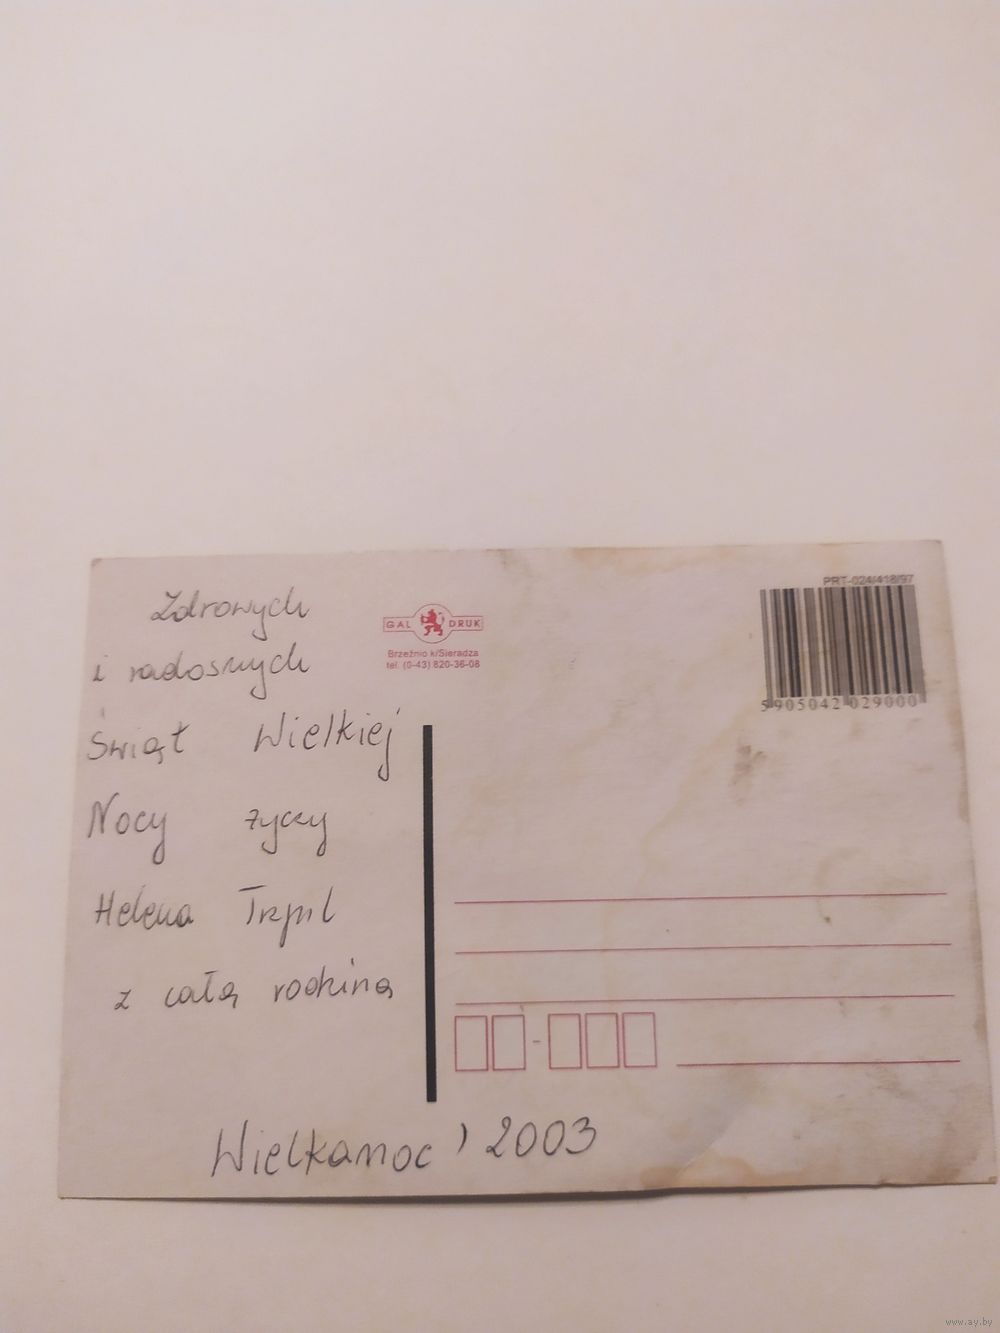 Zdrowych
i radosnych
Świąt Wielkiej
Nocy życzy
Helena
z całą rodziną
Wielkanoc ' 2003
GAL DRUK
Brzeźnio k/Sieradza
tel. (0-43) 820-36-08
PRT-024/418/97
5 905042 029000
-
www.ay.by